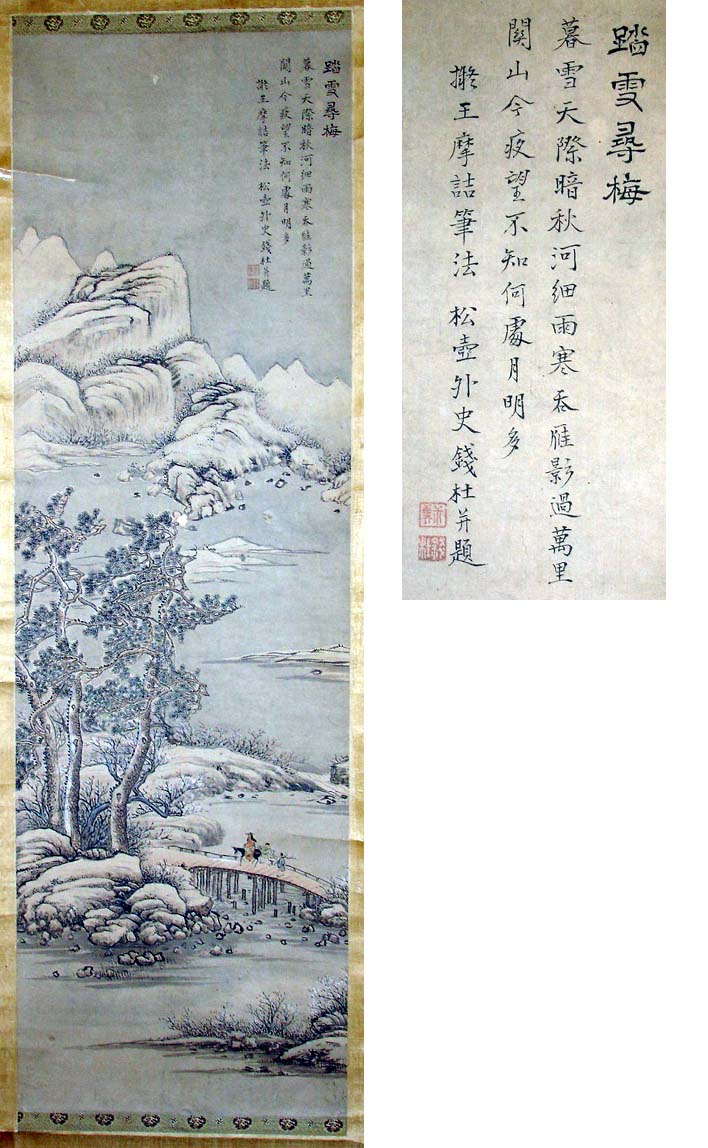 踏雪尋梅
暮雪天際暗秋河細雨寒吞雁影過萬里
關山今夜望不知何處月明多
擬王摩詰筆法 松壺外史錢杜并題
踏雪尋梅
暮雪天際暗秋河細雨寒吞雁影過萬里
關山今夜望不知何處月明多
擬王摩詰筆法 松壺外史錢杜并題